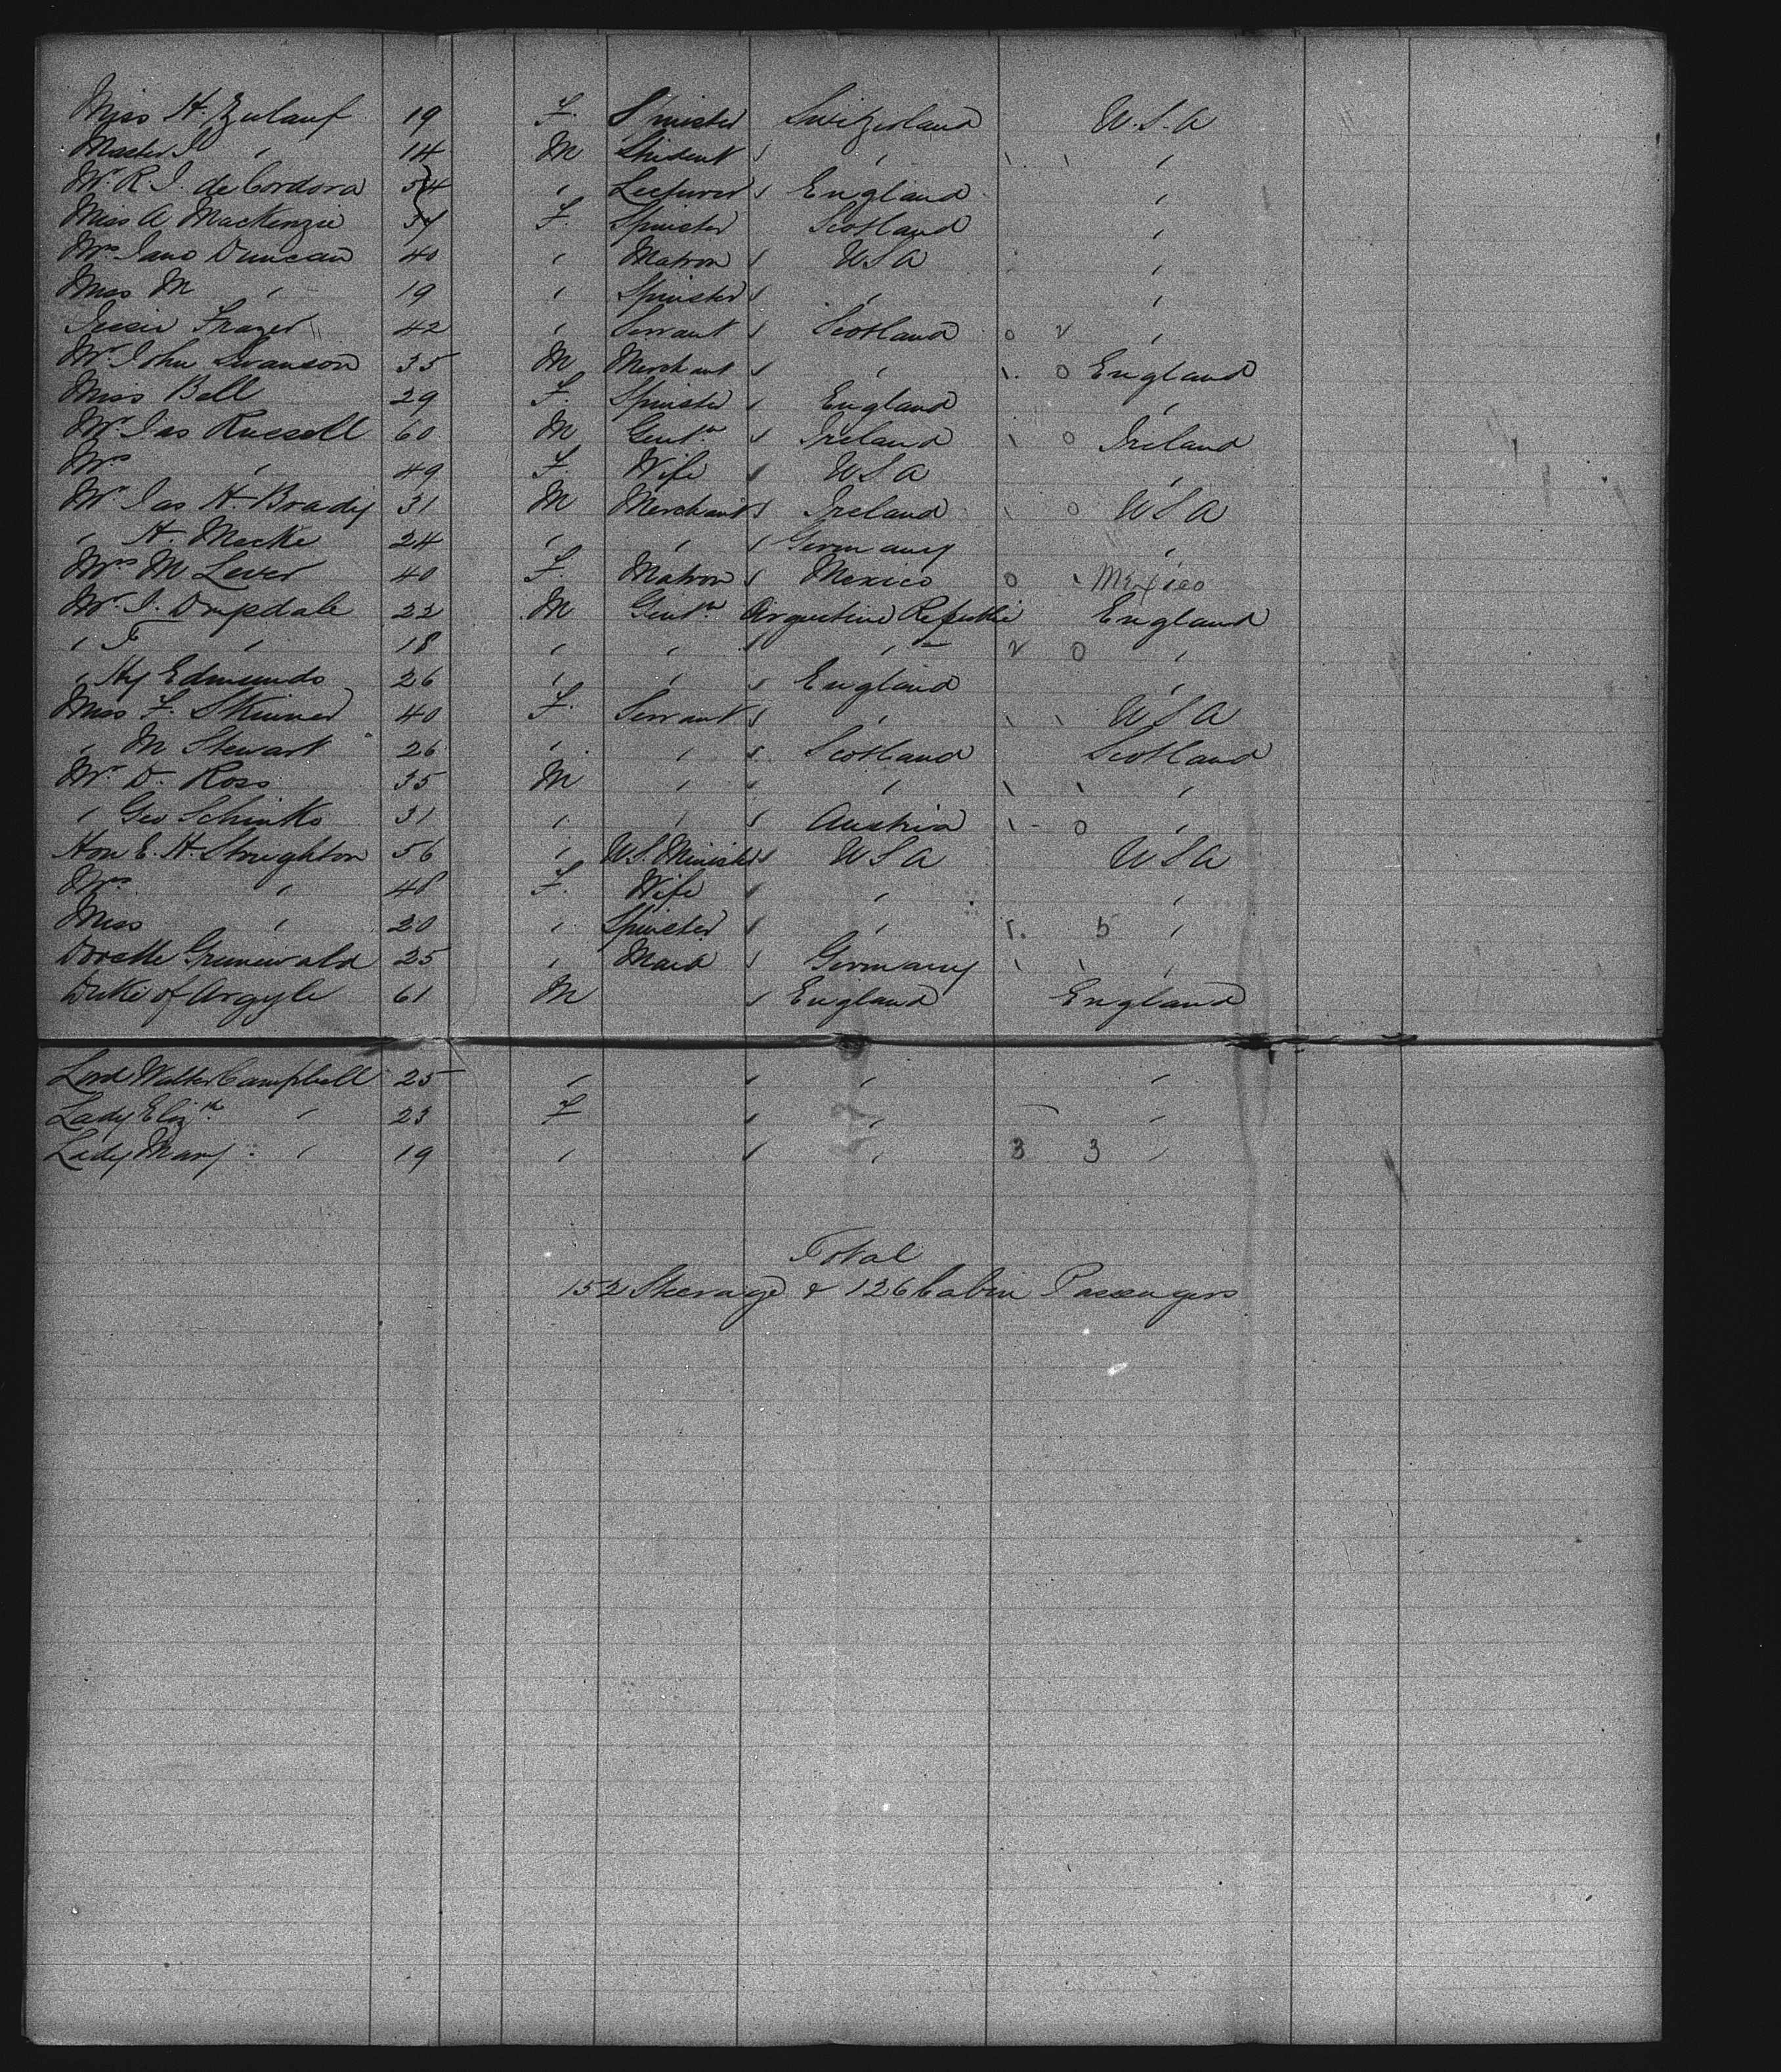 Miss H. Zulauf 19 F. Spinster Switzerland U.S.A
Master J " 14 M Student " "
Mr. R. J. de Cordova 54 " Lecturer England "
Miss A Mackenzie 34 F. Spinster Scotland "
Mrs Jane Duncan 40 " Matron U S A "
Miss M " 19 " Spinster " "
Jessie Frazer 42 " Servant Scotland 0 2 "
Mr. John Swanson 35 M Merchant " 1. 0 England
Miss Bell 29 F. Spinster England "
Mr Jas Russell 60 M Gentn Ireland 1 0 Ireland
Mrs " 49 F. Wife U S A "
Mr Jas H. Brady 31 M Merchant Ireland 1 0 U S A
" H. Mecke 24 " " Germany "
Mrs M Lever 40 F. Matron Mexico 0 1 Mexico
Mr. J. 22 M Gentn. Argentine Republic England
" F " 18 " " " 2 0 "
" Hy Edmunds 26 " " England "
Miss F. Skinner 40 F. Servant " 1 1 U S A
" M Stewart 26 " " Scotland Scotland
Mr D. Ross 35 M " " 1 1 "
" Geo Schinko 31 " " Austria 1 - 0 "
Hon E. H. Stoughton 56 " U.S. Minister U S A U S A
Mrs " 48 F. Wife " "
Miss " 20 " Spinster " "
Dorette Grunewald 25 " Maid Germany 1 1 "
Duke of Argyle 61 M England England
Lord Walter Campbell 25 " " "
Lady Elizth " 23 F " "
Lady Mary " 19 " " 3 3 "
Total
152 Steerage & 126 Cabin Passengers